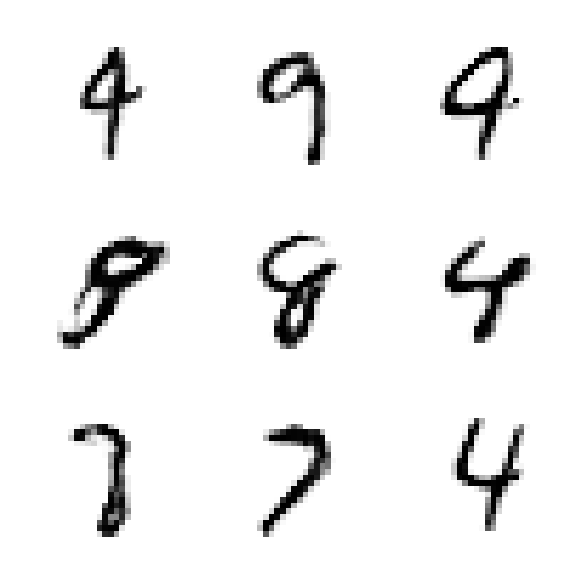 4 9 9
8 8 4
7 4